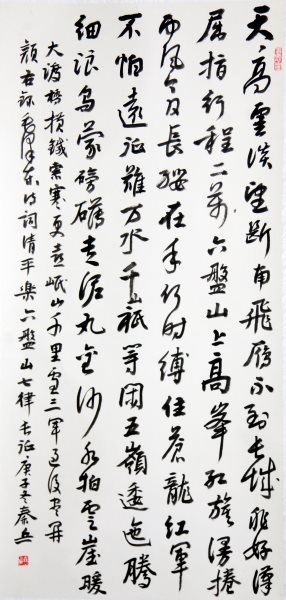 天高雲淡望斷南飛雁不到長城非好漢
屈指行程二萬六盤山上高峯紅旗漫捲
西風今日長纓在手何時縛住蒼龍紅軍
不怕遠征難万水千山祇等閑五嶺逶迤騰
細浪烏蒙磅礴走泥丸金沙水拍雲崖暖
大渡橋橫鐵索寒更喜岷山千里雪三軍過後盡開
顏右錄毛澤東詩詞清平樂六盤山七律長征庚子冬秦